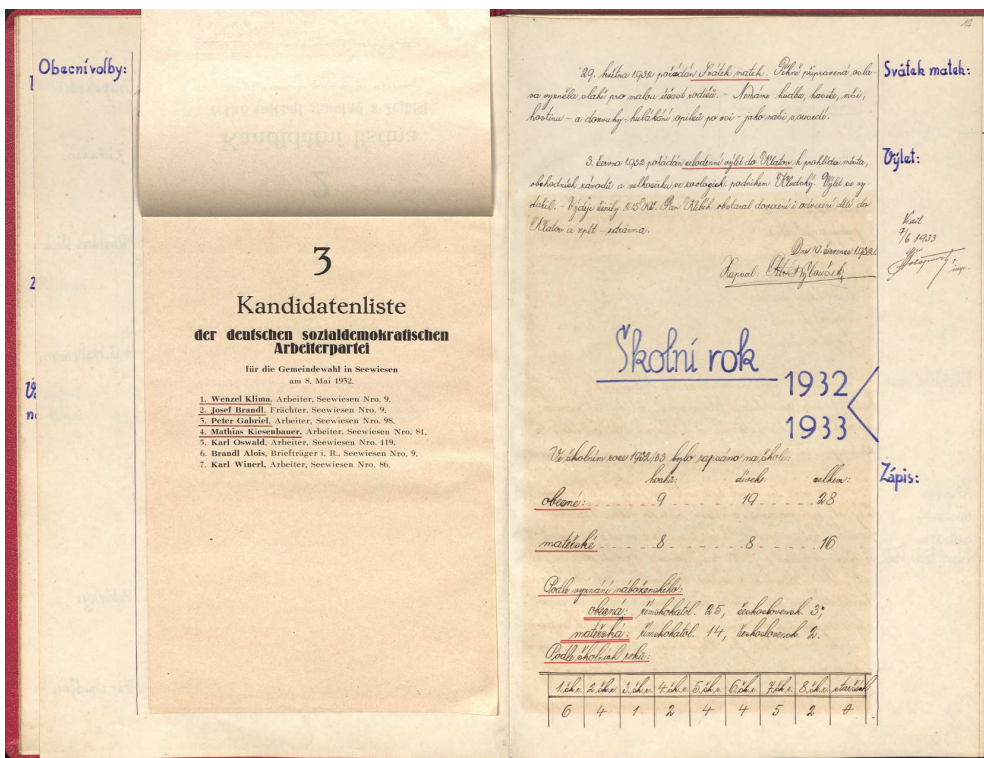 Obecní volby:
3
Kandidatenliste
der deutschen sozialdemokratischen
Arbeiterpartei
für die Gemeindewahl in Seewiesen
am 8. Mai 1932.
1. Wenzel Klima, Arbeiter, Seewiesen Nro. 9.
2. Josef Brandl, Frächter, Seewiesen Nro. 9.
3. Peter Gabriel, Arbeiter, Seewiesen Nro. 98.
4. Mathias Kiesenbauer, Arbeiter, Seewiesen Nro. 81.
5. Karl Oswald, Arbeiter, Seewiesen Nro. 119.
6. Brandl Alois, Briefträger i. R., Seewiesen Nro. 9.
7. Karl Winerl, Arbeiter, Seewiesen Nro. 86.
Svátek matek:
29. května 1932 pořádán Svátek matek. Pěkně připravená osla-
va vyzněla, slabí pro malou účast rodičů. – Nemáme hudbu,
hostinu – a
3. června 1932 pořádán celodenní výlet do Klatov k prohlídce města,
obchodních závodů a Kludský. Výlet se vy-
dařil. – Výdeje činily Kč. Pan obstaral dovezení i odvezení dětí do
Klatov a zpět – zdarma.
Výlet:
7/6 1933
Dne 10. července 1932.
Zapsal:
Školní rok 1932
1933
Zápis:
Ve školním roce 1932/33 bylo zapsáno na škole:
hochů: dívek: celkem:
obecné: 9 19 28
mateřské 8 8 16
Podle vyznání náboženského:
obecná: římskokatol. 25, československ. 3;
mateřská: římskokatol. 14, československ. 2.
Podle školních roků:
1. šk. r. 2. šk. r. 3. šk. r. 4. šk. r. 5. šk. r. 6. šk. r. 7. šk. r. 8. šk. r.
6 4 1 2 4 4 5 2